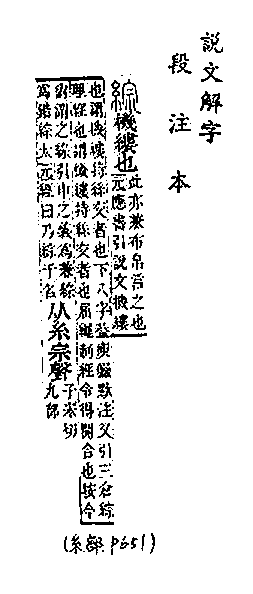 說文解字
段注本
綜 機縷也 此亦兼布帛言之也
元應書引說文機縷
也謂機縷持絲交者也下八字葢庾儼默注又引三倉綜
理經也謂機縷持絲交者也屈繩制經令得開合也按今
尙謂之綜引申之義爲兼綜
爲錯綜太元經曰乃綜乎名
从糸宗聲
子宋切
九部
(糸部 P651)